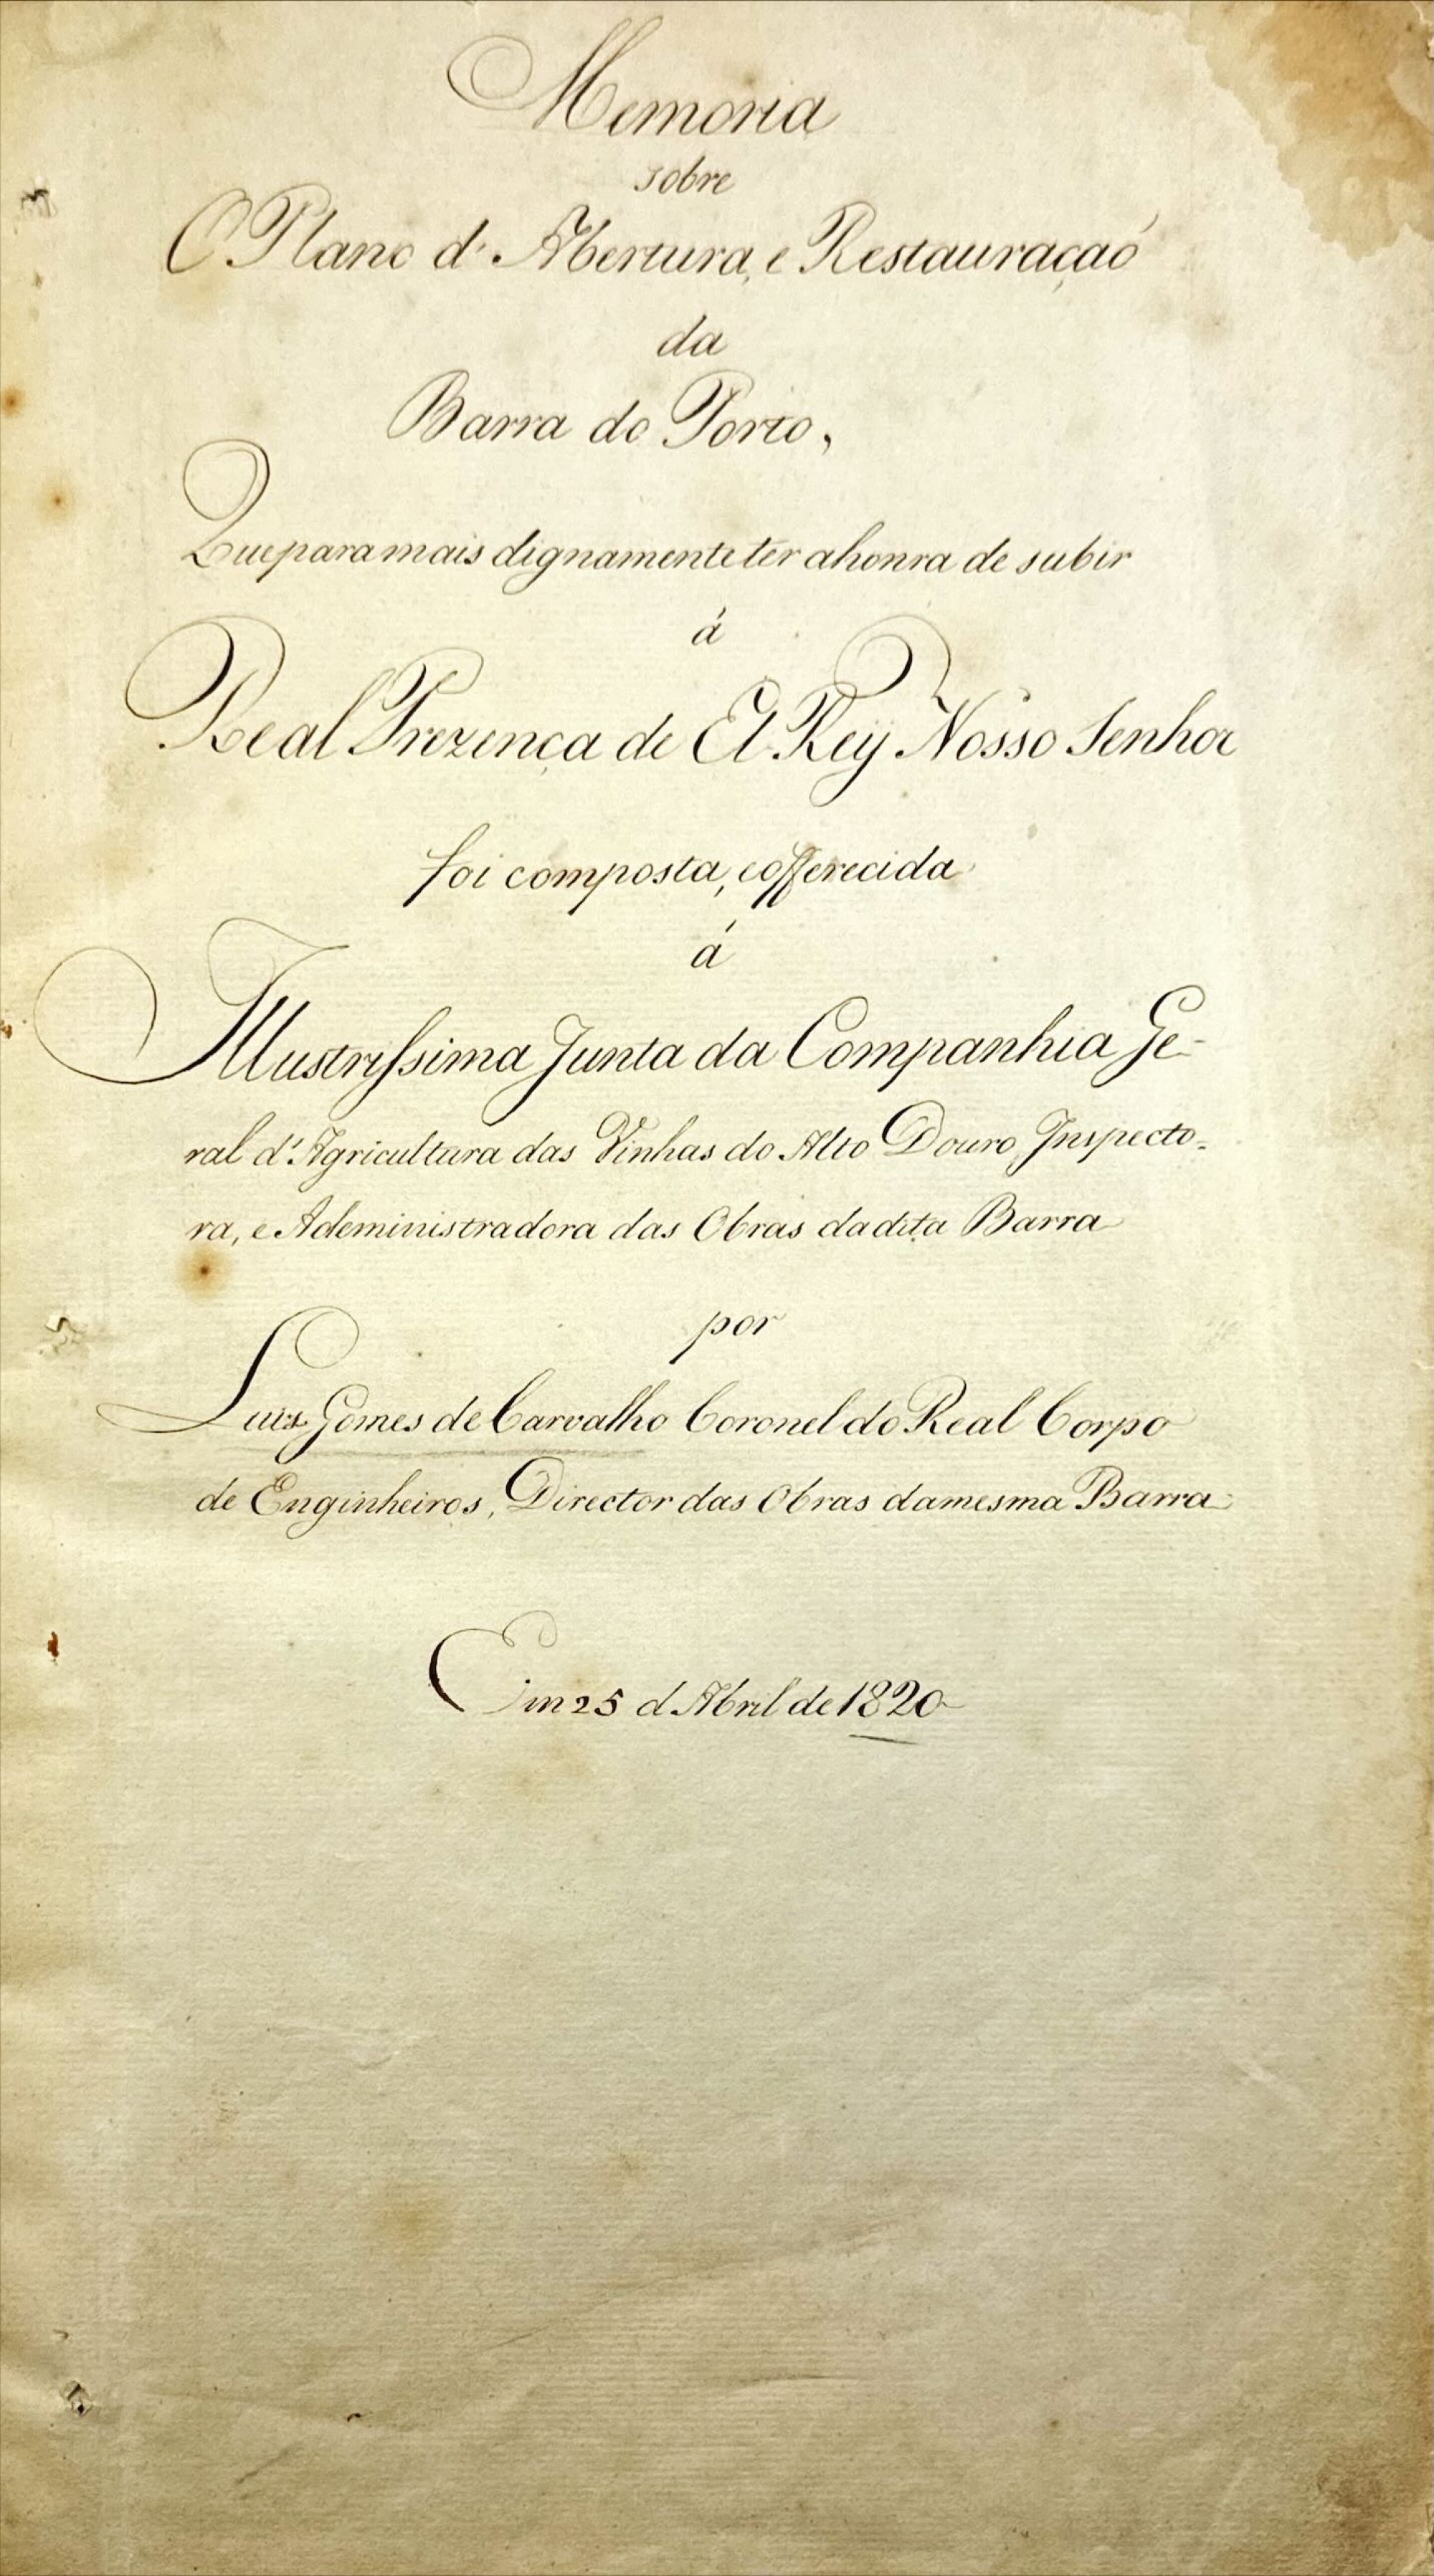 Memoria
sobre
O Plano d'Abertura, e Restauraçaó
da
Barra do Porto,
Que para mais dignamente ter a honra de subir
á
Real Prezença de El Rey Nosso Senhor
foi composta, e offerecida
á
Illustrissima Junta da Companhia Ge-
ral d'Agricultura das Vinhas do Alto Douro, Inspecto-
ra, e Adeministradora das Obras da dita Barra
por
Luis Gomes de Carvalho Coronel do Real Corpo
de Enginheiros, Director das Obras da mesma Barra
Em 25 d'Abril de 1820